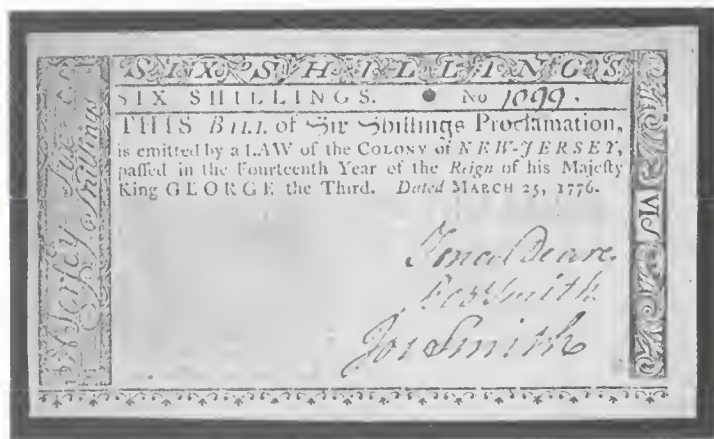 SIX SHILLINGS
SIX SHILLINGS. No 1099.
THIS BILL of Six Shillings Proclamation,
is emitted by a LAW of the COLONY of NEW-JERSEY,
passed in the Fourteenth Year of the Reign of his Majesty
King GEORGE the Third. Dated MARCH 25, 1776.
Jona Deare
Smith
Jos Smith
Jersey Six
Shillings
SIX